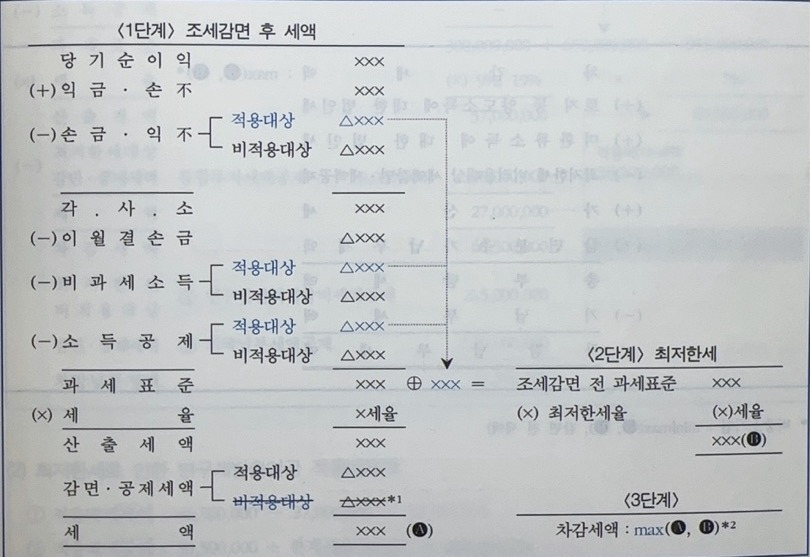 〈1단계〉 조세감면 후 세액
당기순이익 ×××
(+) 익금·손不 ×××
(−) 손금·익不 적용대상 △×××
비적용대상 △×××
각 . 사 . 소 ×××
(−) 이월결손금 △×××
(−) 비과세소득 적용대상 △×××
비적용대상 △×××
(−) 소득공제 적용대상 △×××
비적용대상 △×××
과세표준 ××× ⊕ ××× =
(×) 세율 ×세율
산출세액 ×××
감면·공제세액 적용대상 △×××
비적용대상 △×××*1
세액 ××× (A)
〈2단계〉 최저한세
조세감면 전 과세표준 ×××
(×) 최저한세율 (×)세율
×××(B)
〈3단계〉
차감세액 : max(A, B)*2